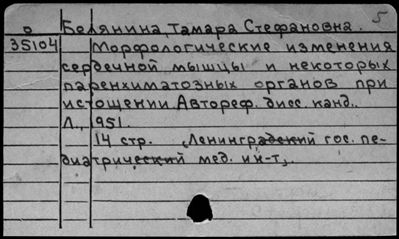 5
о Белянина, Тамара Стефановна.
35104 Морфологические изменения
сердечной мышцы и некоторых
паренхиматозных органов при
истощении. Автореф. дисс. канд.
Л., 1951.
14 стр. (Ленинградский гос. пе-
диатрический мед. ин-т).